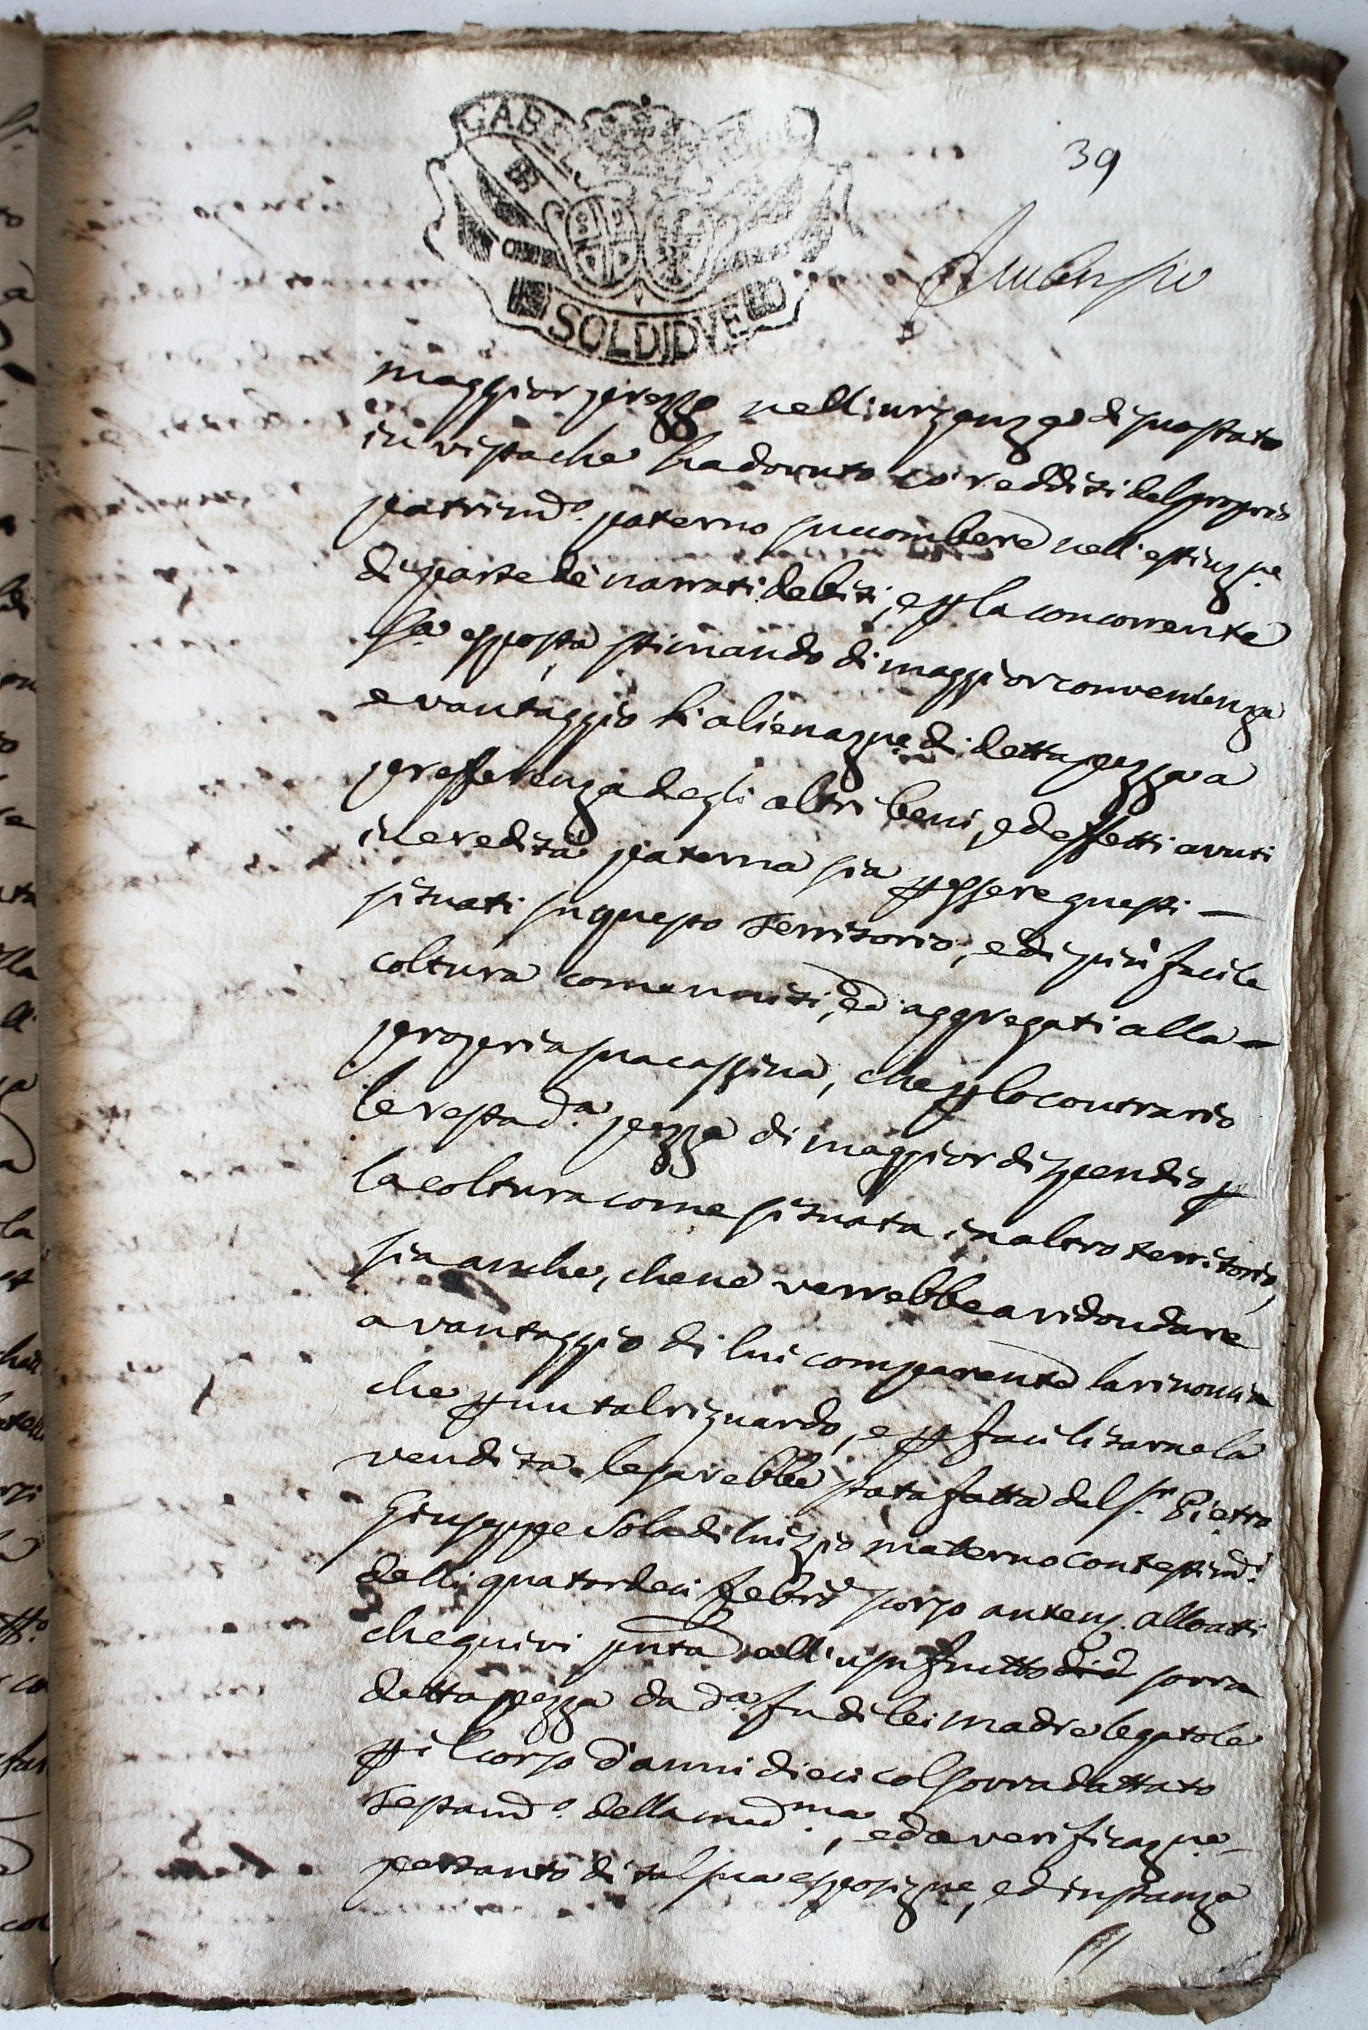 39
GABEL
SOLDI DVE
maggior prezzo nell'urgenza di suo stato
in vista che ha dovuto co' redditi del proprio
patrim.o paterno succombere nell'estinz.e
di parte de narrati debiti, e p la concorrente
esposta stimando di maggior convenienza
e vantaggio l'alienaz.ne di detta pezza a
prefferenza degli altri beni, ed effetti avuti
in eredità paterna sia p essere questi —
situati su questo Territorio, e di più facile
coltura come uniti, ed aggregati alla —
propria sua cassina, che p lo contrario
le resta d.a pezza di maggior dispendio p
la coltura come situata in altro territorio,
sia anche, che ne verrebbe a ridondare
a vantaggio di lui comparente la rinoncia
che p un tal riguardo, e p facilitarne la
vendita le sarebbe stata fatta dal S.r Pietro
Giuseppe Sola di lui zio materno con testim.l
delli quatordeci febr.o scorso auten. alli atti
che quivi pnta all'usufrutto sovra
detta pezza da d.a fu di lei madre legatole
p il corso d'anni dieci col sovra dattato
Testam.o della med.ma, ed a verificaz.ne
pertanto di tal sua esposizne, ed instanza